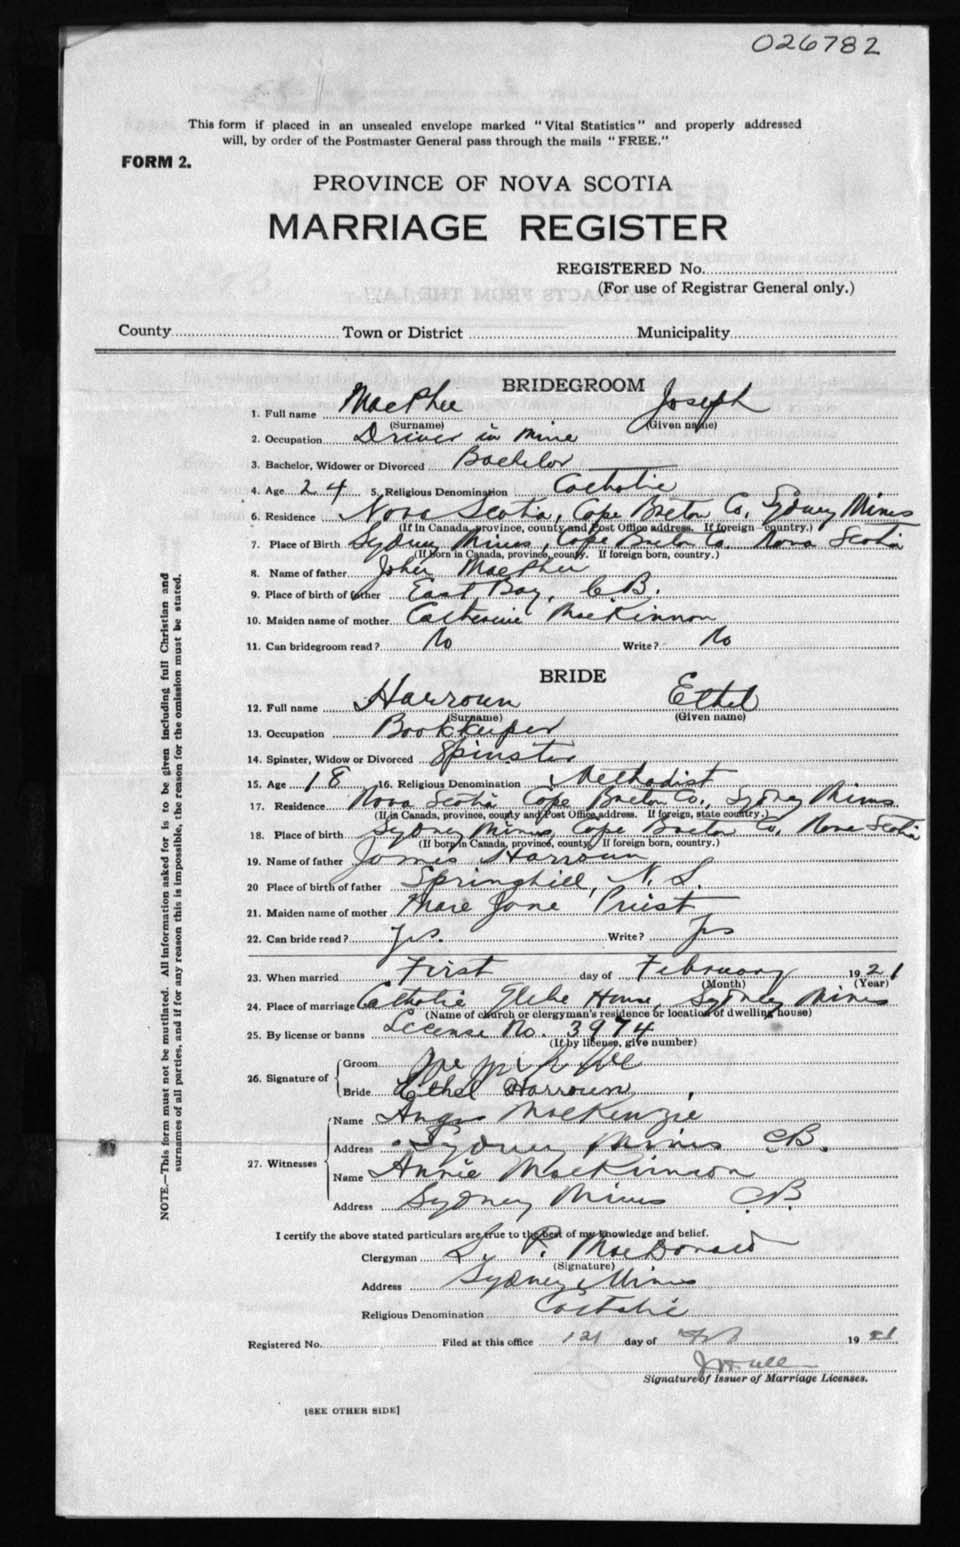 026782
This form if placed in an unsealed envelope marked "Vital Statistics" and properly addressed
will, by order of the Postmaster General pass through the mails "FREE."
FORM 2.
PROVINCE OF NOVA SCOTIA
MARRIAGE REGISTER
REGISTERED No.
(For use of Registrar General only.)
County Town or District Municipality
BRIDEGROOM
1. Full name MacPhee Joseph
(Surname) (Given name)
2. Occupation Driver in Mine
3. Bachelor, Widower or Divorced Bachelor
4. Age 24 5. Religious Denomination Catholic
6. Residence Nova Scotia, Cape Breton Co, Sydney Mines
(If in Canada, province, county and Post Office address. If foreign country.)
7. Place of Birth Sydney Mines, Cape Breton Co Nova Scotia
(If born in Canada, province, county. If foreign born, country.)
8. Name of father John MacPhee
9. Place of birth of father East Bay, C.B.
10. Maiden name of mother Catherine MacKinnon
11. Can bridegroom read? No Write? No
BRIDE
12. Full name Harroun Ethel
(Surname) (Given name)
13. Occupation Bookkeeper
14. Spinster, Widow or Divorced Spinster
15. Age 18 16. Religious Denomination Methodist
17. Residence Nova Scotia Cape Breton Co., Sydney Mines
(If in Canada, province, county and Post Office address. If foreign, state country.)
18. Place of birth Sydney Mines, Cape Breton Co, Nova Scotia
(If born in Canada, province, county. If foreign born, country.)
19. Name of father James Harroun
20 Place of birth of father Springhill, N.S.
21. Maiden name of mother Mare Jane Priest
22. Can bride read? Yes. Write? Yes
23. When married First day of February 1921
(Month) (Year)
24. Place of marriage Catholic Glebe House, Sydney Mines
(Name of church or clergyman's residence or location of dwelling house)
25. By license or banns License No. 3974
(If by license, give number)
26. Signature of Groom Joe
Bride Ethel Harroun
27. Witnesses Name Angus MacKenzie
Address Sydney Mines C.B.
Name Annie MacKinnon
Address Sydney Mines C.B.
I certify the above stated particulars are true to the best of my knowledge and belief.
Clergyman P. MacDonald
(Signature)
Address Sydney Mines
Religious Denomination Catholic
Registered No. Filed at this office 1st day of Feb 1921
Signature of Issuer of Marriage Licenses.
[SEE OTHER SIDE]
NOTE.—This form must not be mutilated. All information asked for is to be given including full Christian and
surnames of all parties, and if for any reason this is impossible, the reason for the omission must be stated.